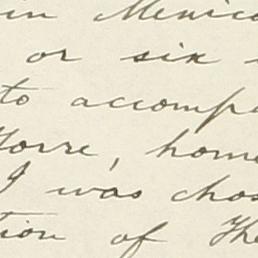 in Mexico
or six
to accompa
Torre, home
I was chos
tion of the